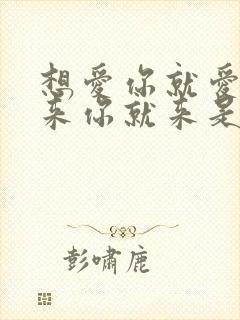 想爱你就爱
来你就来是
彭啸鹿